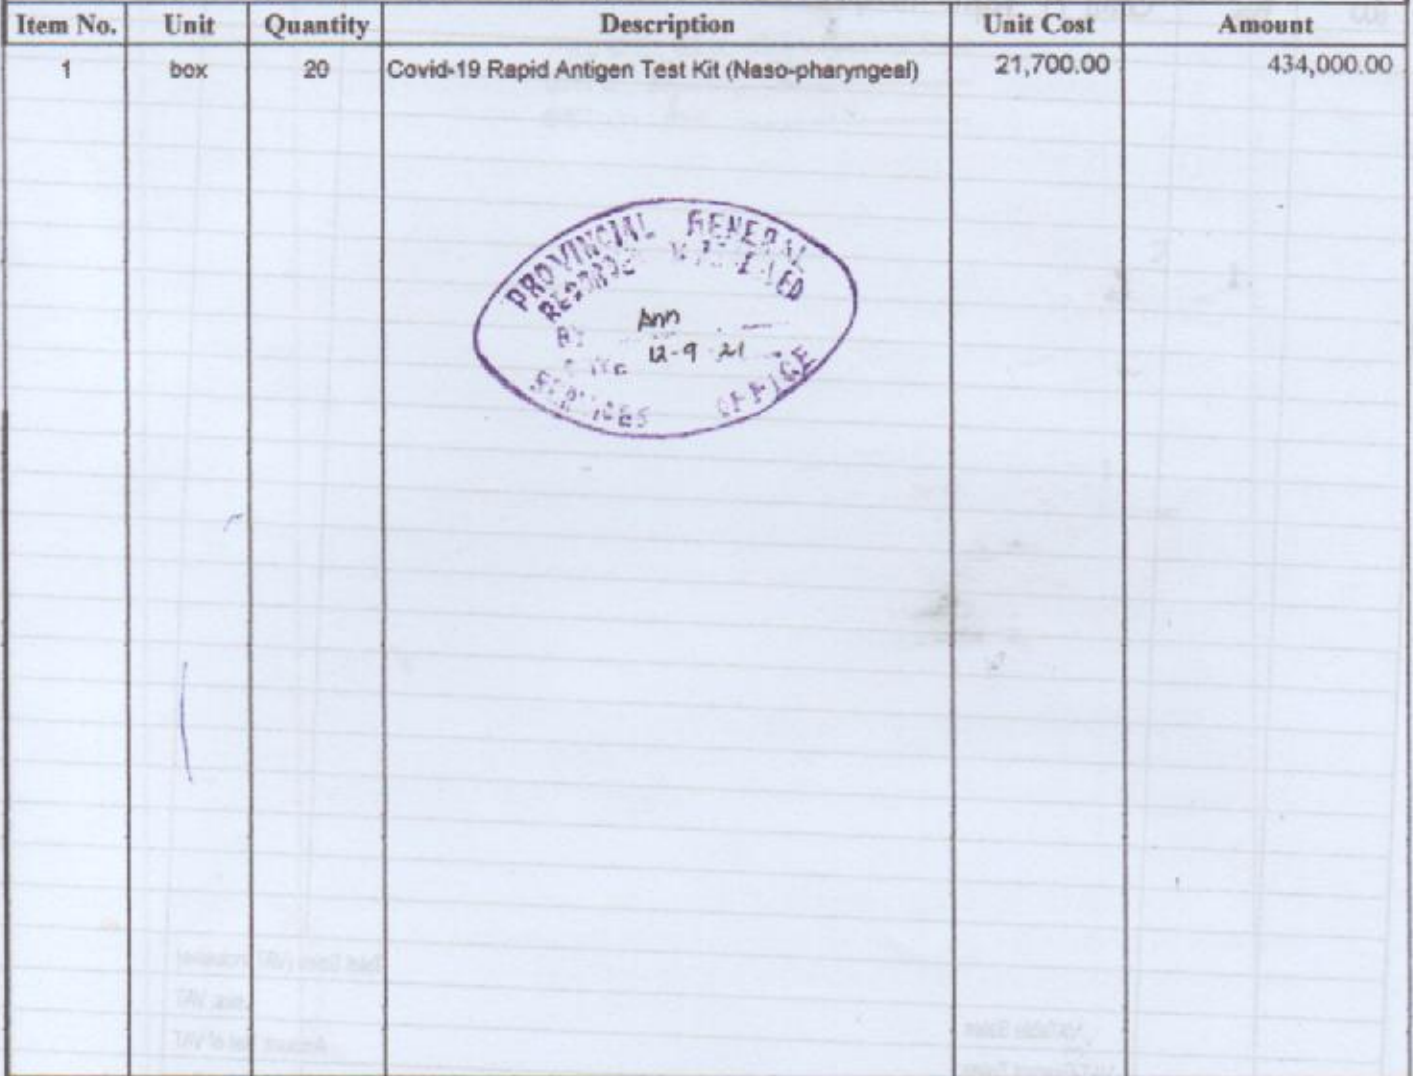 Item No. Unit Quantity Description Unit Cost Amount
1 box 20 Covid-19 Rapid Antigen Test Kit (Naso-pharyngeal) 21,700.00 434,000.00
PROVINCIAL GENERAL
RECORDS
BY Ann
DATE 12-9-21
SERVICES OFFICE